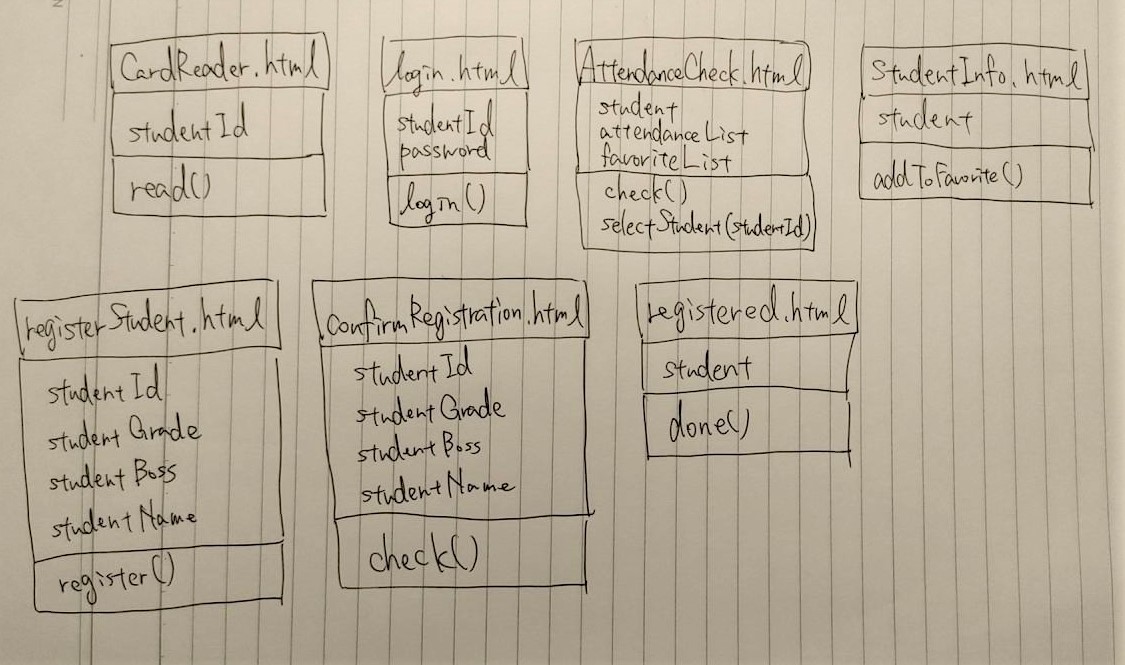 CardReader.html
studentId
read()
login.html
studentId
password
login()
AttendanceCheck.html
student
attendanceList
favoriteList
check()
selectStudent(studentId)
StudentInfo.html
student
addToFavorite()
registerStudent.html
studentId
studentGrade
studentBoss
studentName
register()
confirmRegistration.html
studentId
studentGrade
studentBoss
studentName
check()
registered.html
student
done()